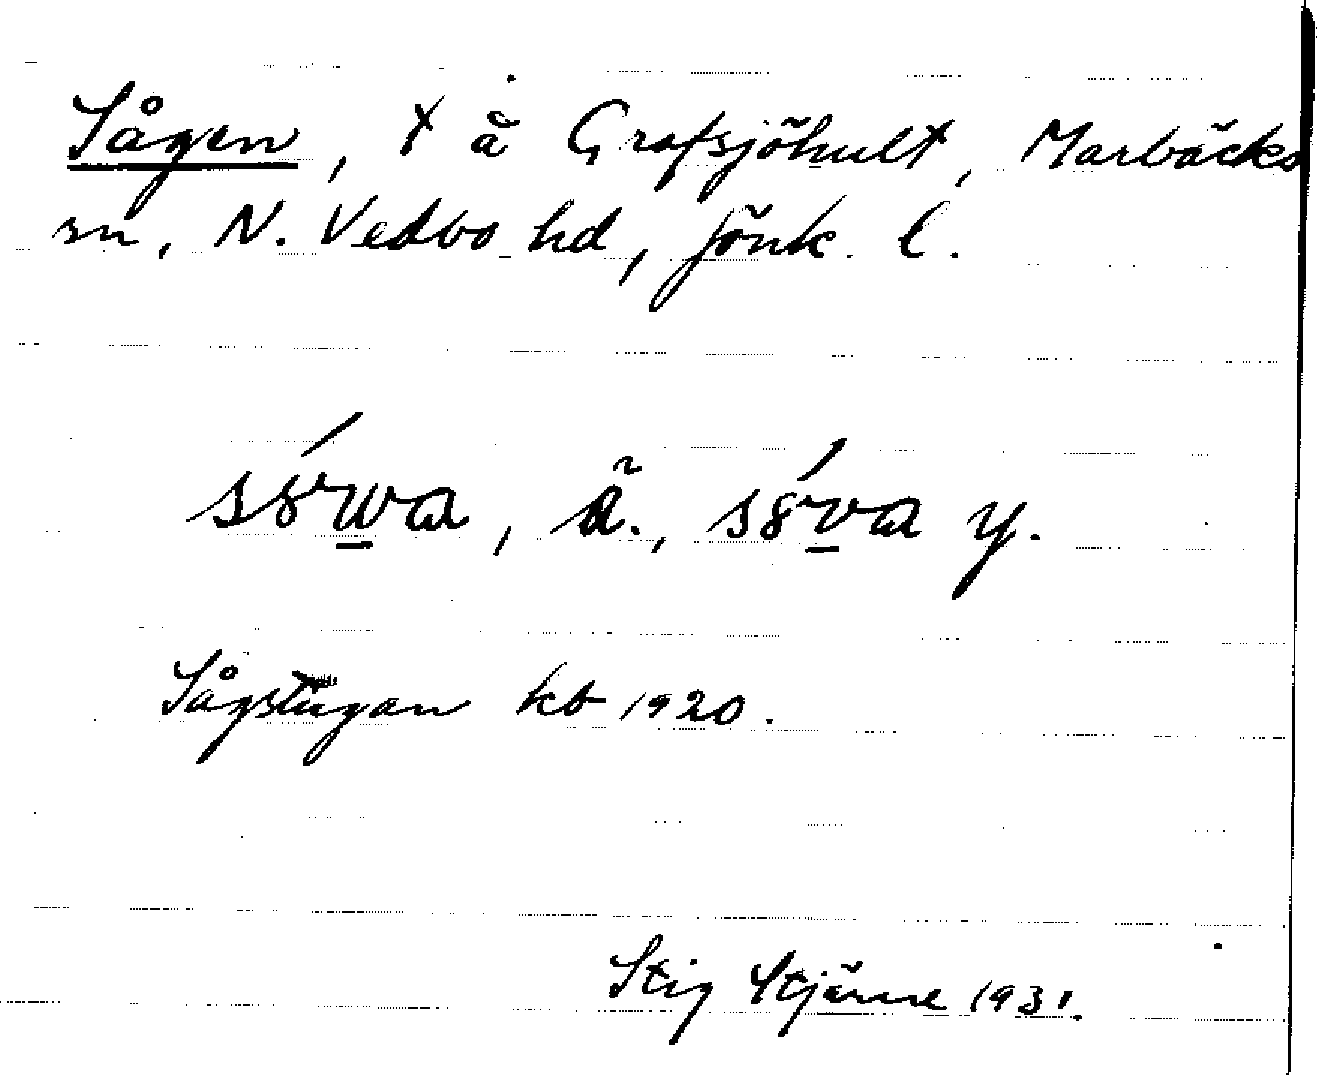 Sågen, t å Grafsjöhult, Marbäcks
sn, N. Vedbo hd, Jönk. l.
Sågstugan kb 1920.
Stig Stjärne 1931.